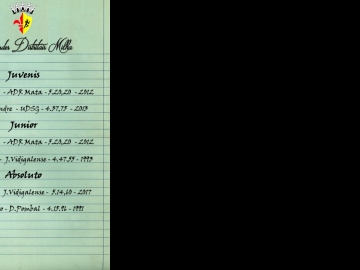 Distritais Milha
Juvenis
- ADR Mata - 5.20,20 - 2012
- UDSG - 4.37,75 - 2013
Junior
- ADR Mata - 5.20,20 - 2012
- J.Vidigalense - 4.47.55 - 1993
Absoluto
J.Vidigalense - 5.14,60 - 2017
- D.Pombal - 4.15.96 - 1991